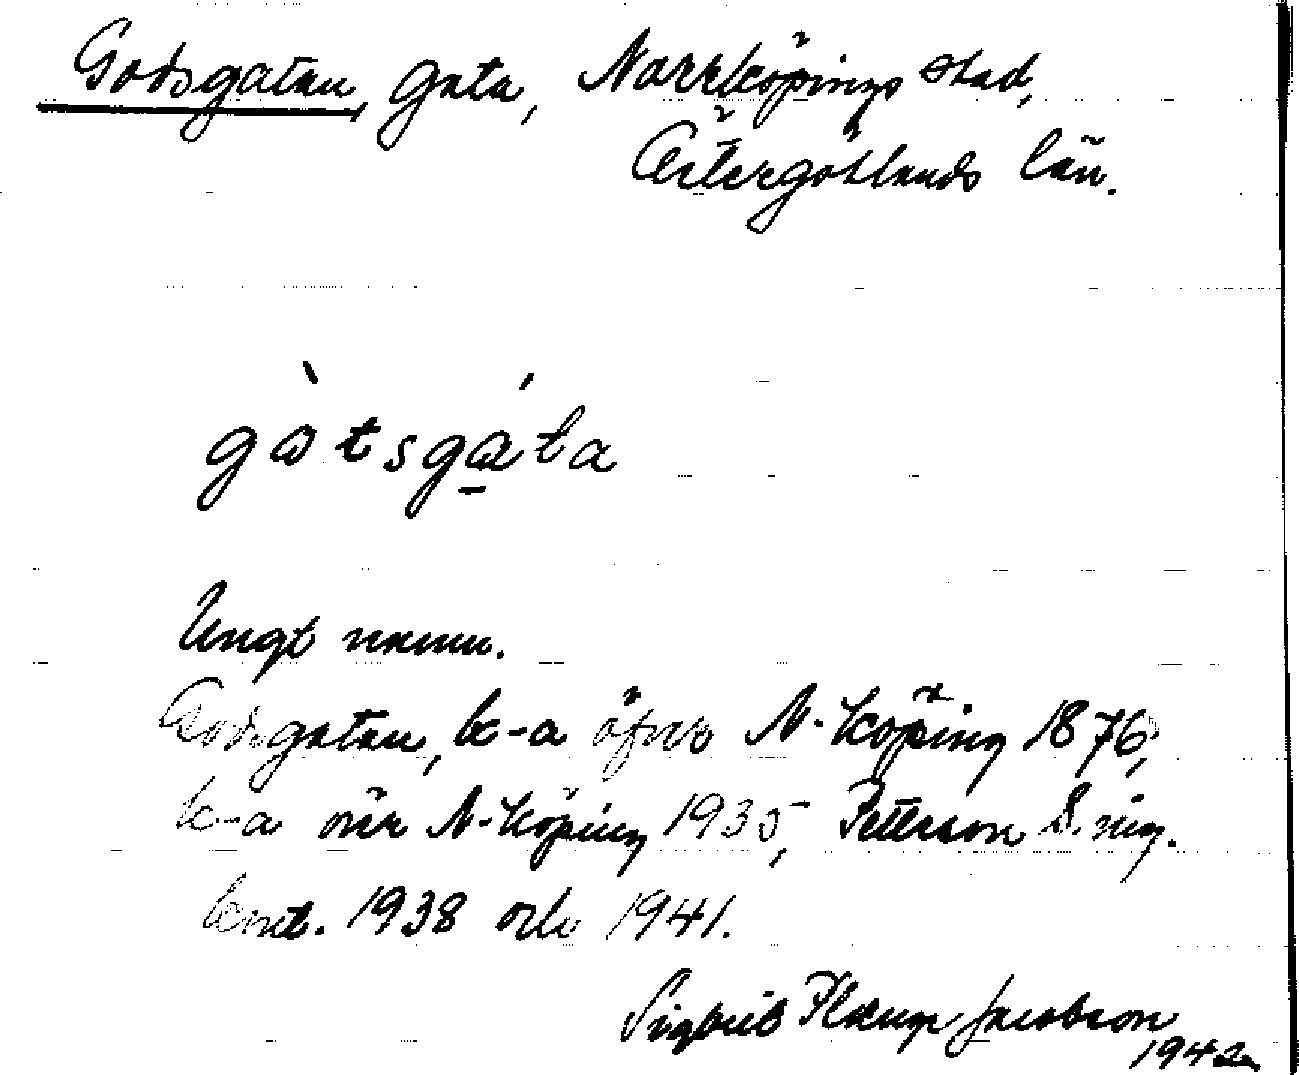 Godsgatan, gata, Norrköpings stad,
Östergötlands län.
gòtsgá̱ta
Ungt namn.
Godsgatan, k-a öfver N-köping 1876,
k-a över N-köping 1935, Petterson S. ing.
kont. 1938 och 1941.
Sigbrit Plænge Jacobson
1942